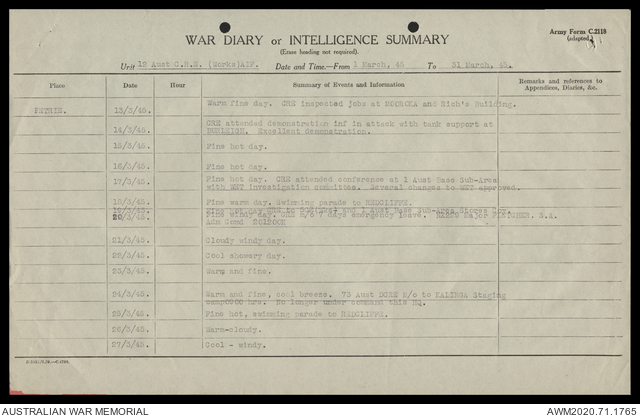 WAR DIARY or INTELLIGENCE SUMMARY
Army Form C.2118
(adapted)
(Erase heading not required).
Unit 12 Aust C.R.E. (Works)AIF. Date and Time.—From 1 March, 45 To 31 March, 45.
Place Date Hour Summary of Events and Information Remarks and references to
Appendices, Diaries, &c.
PETRIE. 13/3/45. Warm fine day. CRE inspected jobs at MOOROKA and Rich's Building.
CRE attended demonstration inf in attack with tank support at
14/3/45. BURLEIGH. Excellent demonstration.
15/3/45. Fine hot day.
16/3/45. Fine hot day.
17/3/45. Fine hot day. CRE attended conference at 1 Aust Base Sub-Area
with WET investigation committee. Several changes to WET approved.
18/3/45. Fine warm day. Swimming parade to REDCLIFFE.
19/3/45. 1 Aust Base Sub-Area Stores
20/3/45. Fine windy day. CRE 7 days emergency leave. Major R.A.
Adm Comd
21/3/45. Cloudy windy day.
22/3/45. Cool showery day.
23/3/45. Warm and fine.
24/3/45. Warm and fine, cool breeze. 73 Aust to KALINGA Staging
hrs. No longer under command this HQ.
25/3/45. Fine hot, swimming parade to REDCLIFFE.
26/3/45. Warm-cloudy.
27/3/45. Cool - windy.
AUSTRALIAN WAR MEMORIAL AWM2020.71.1765